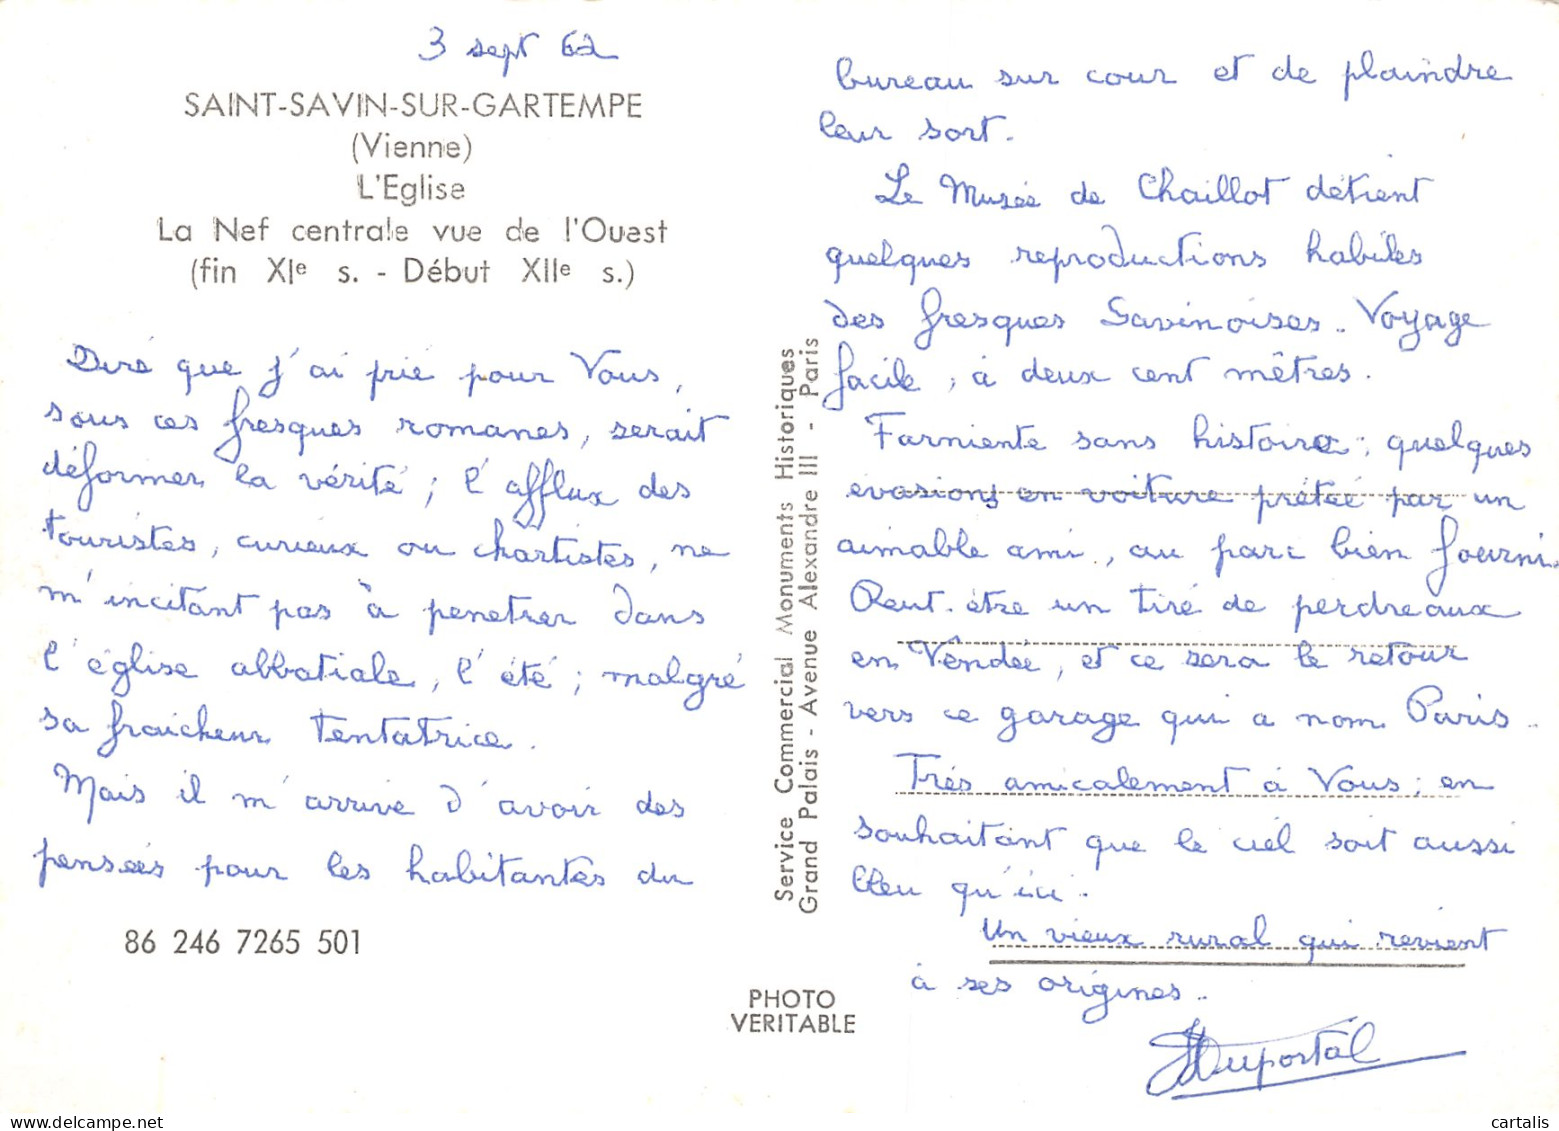 3 sept 62
SAINT-SAVIN-SUR-GARTEMPE
(Vienne)
L'Eglise
La Nef centrale vue de l'Ouest
(fin XIe s. - Début XIIe s.)
Diré que j'ai prié pour Vous,
sous ces fresques romanes, serait
déformer la vérité ; l'afflux des
touristes, curieux ou chartistes, ne
m'incitant pas à penetrer dans
l'église abbatiale, l'été ; malgré
sa fraicheur tentatrice.
Mais il m'arrive d'avoir des
pensées pour les habitantes du
86 246 7265 501
Service Commercial Monuments Historiques
Grand Palais - Avenue Alexandre III - Paris
PHOTO
VERITABLE
bureau sur cour et de plaindre
leur sort.
Le Musée de Chaillot détient
quelques reproductions habiles
des fresques Savinoises. Voyage
facile ; à deux cent mètres.
Farniente sans histoire ; quelques
evasions en voiture prêtée par un
aimable ami, au parc bien fourni.
Peut-être un tiré de perdreaux
en Vendée, et ce sera le retour
vers ce garage qui a nom Paris.
Très amicalement à Vous ; en
souhaitant que le ciel soit aussi
bleu qu'ici.
Un vieux rural qui revient
à ses origines..
Duportal
cartalis